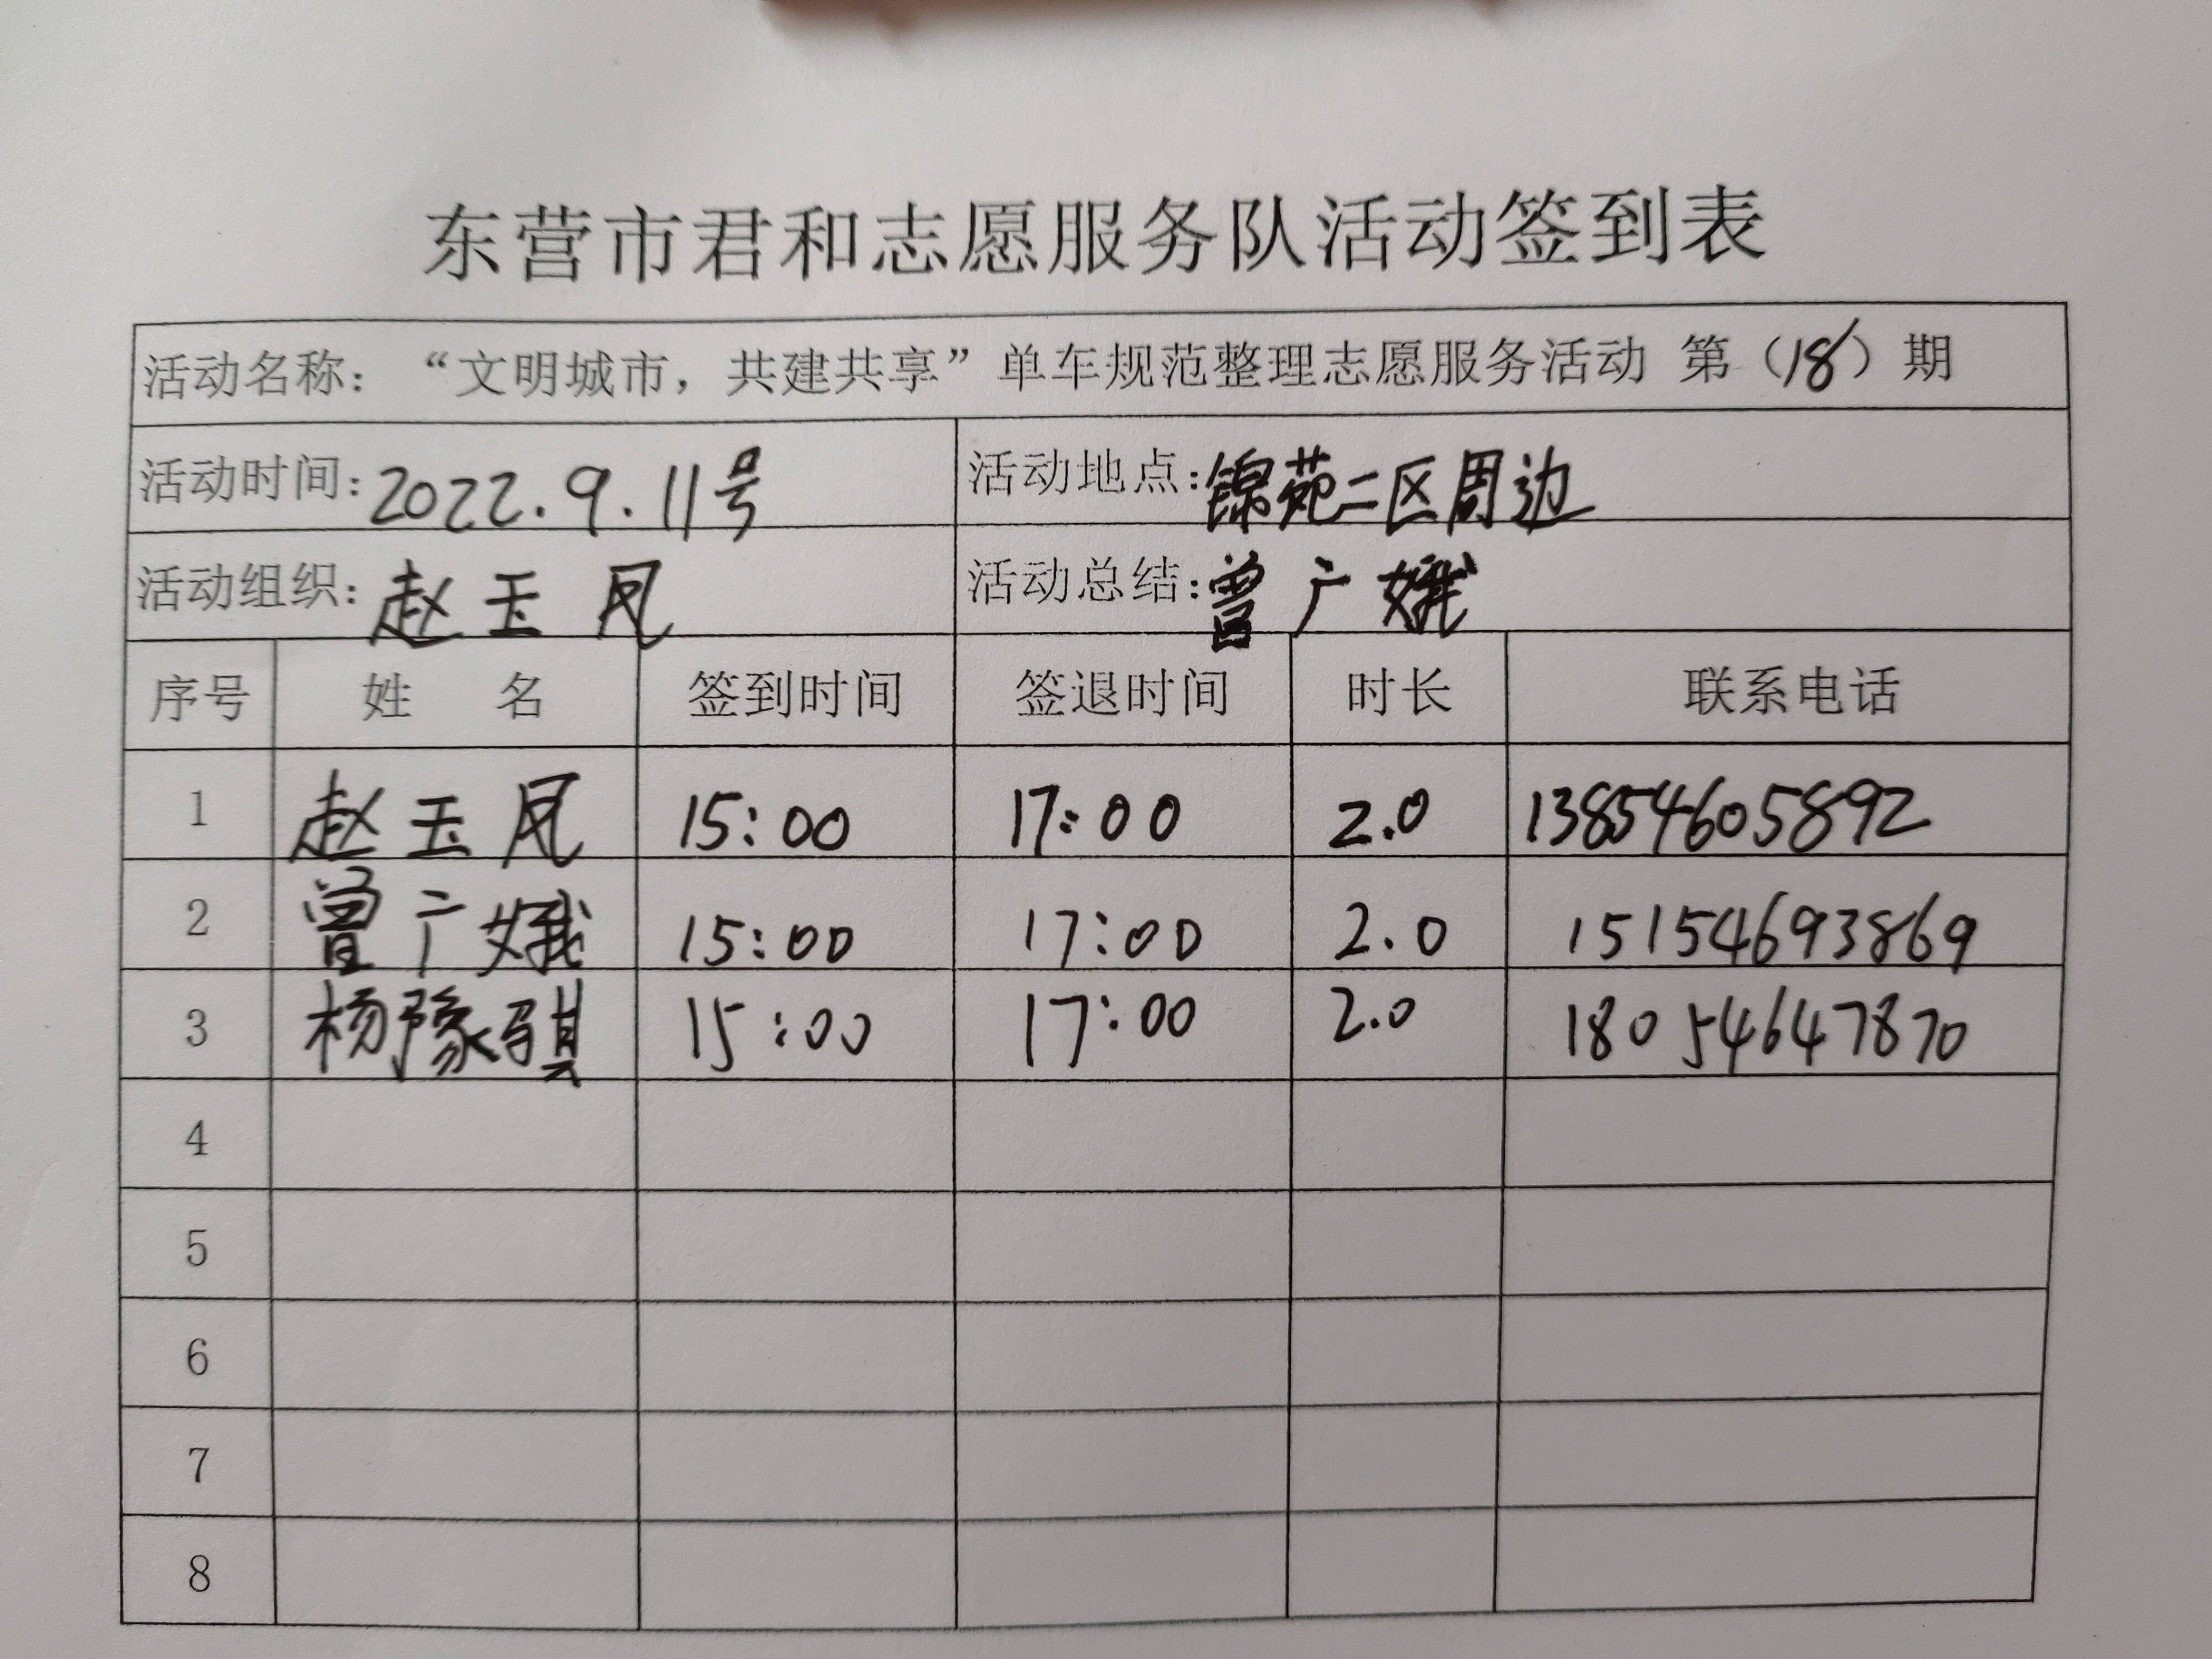 东营市君和志愿服务队活动签到表
活动名称：“文明城市，共建共享”单车规范整理志愿服务活动 第（18）期
活动时间：2022.9.11号 活动地点：锦苑二区周边
活动组织：赵玉凤 活动总结：曾广娥
序号 姓 名 签到时间 签退时间 时长 联系电话
1 赵玉凤 15:00 17:00 2.0 13854605892
2 曾广娥 15:00 17:00 2.0 15154693869
3 杨豫骐 15:00 17:00 2.0 18054647870
4
5
6
7
8